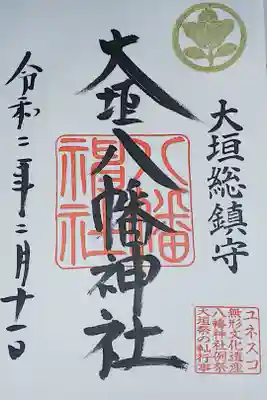 大垣総鎮守
大垣八幡神社
八幡神社
令和二年二月十一日
ユネスコ
無形文化遺産
八幡神社例祭
大垣祭の軕行事